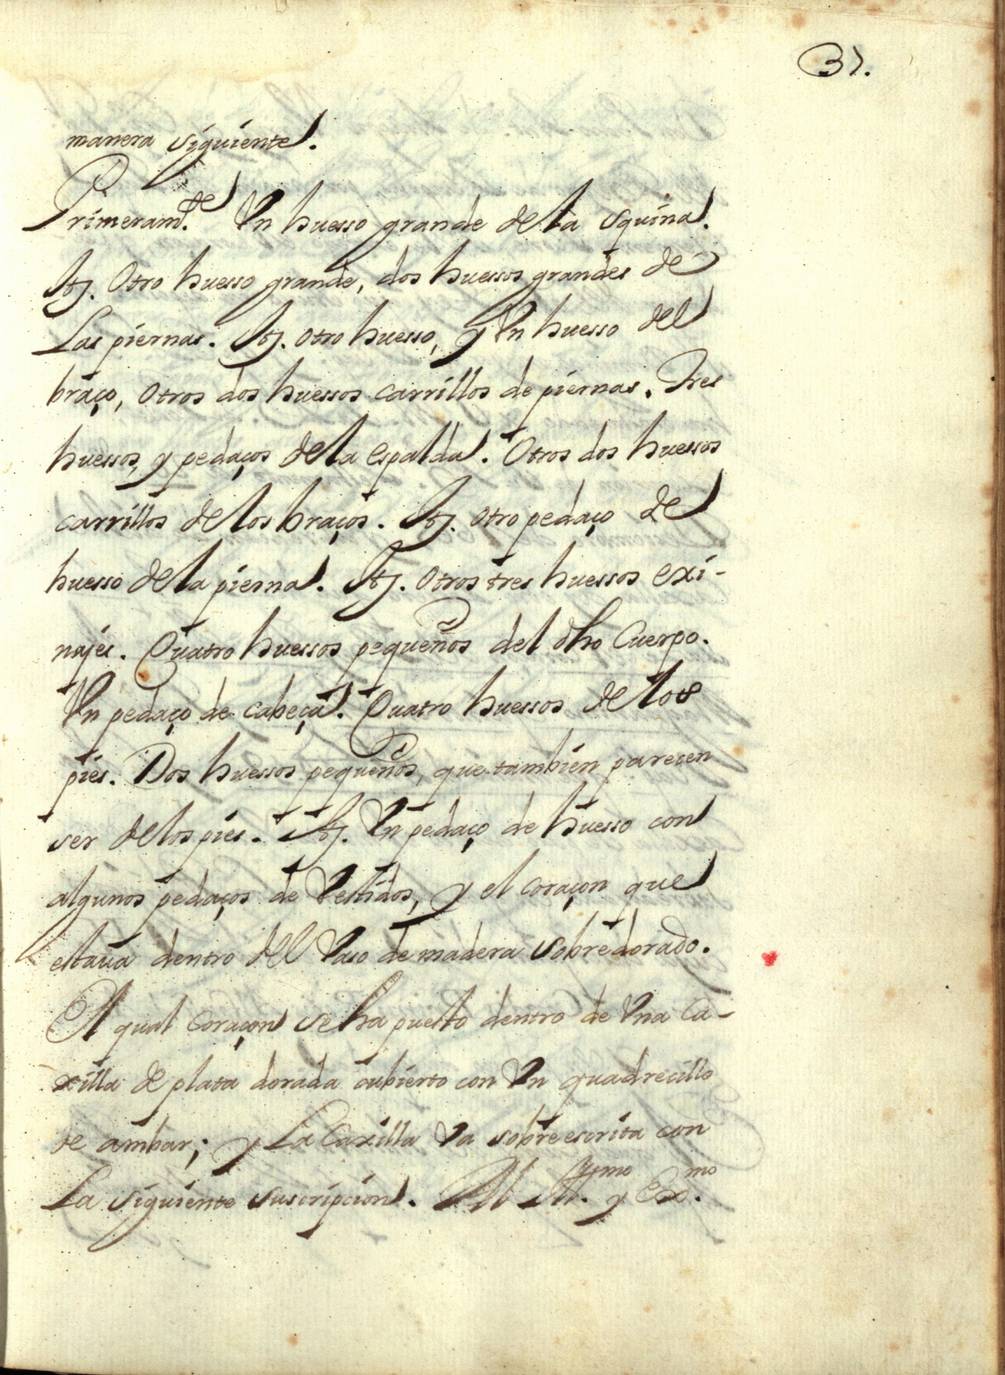 37.
manera siguiente.
Primeram.te Vn huesso grande de la esquina.
Itj. Otro huesso grande, dos huessos grandes de
Las piernas. Itj. otro huesso, y Vn huesso del
braço, otros dos huessos carrillos de piernas. Tres
huessos, y pedaços de la espalda. Otros dos huessos
carrillos de los braços. Itj. otro pedaço de
huesso de la pierna. Itj. Otros tres huessos exi-
najes. Quatro huessos pequeños del dho Cuerpo.
Vn pedaço de cabeça. Quatro huessos de los
pies. Dos huessos pequeños, que tambien parecen
ser de los pies. Itj. Vn pedaço de huesso con
algunos pedaços de Vestidos, y el coraçon que
estaua dentro del Vaso de madera sobredorado.
El qual coraçon se ha puesto dentro de Vna ca-
xilla de plata dorada cubierto con Vn quadrecillo
de ambar; y La Caxilla Va sobreescrita con
La siguiente suscripcion. Al Ill.ymo y Ex.mo